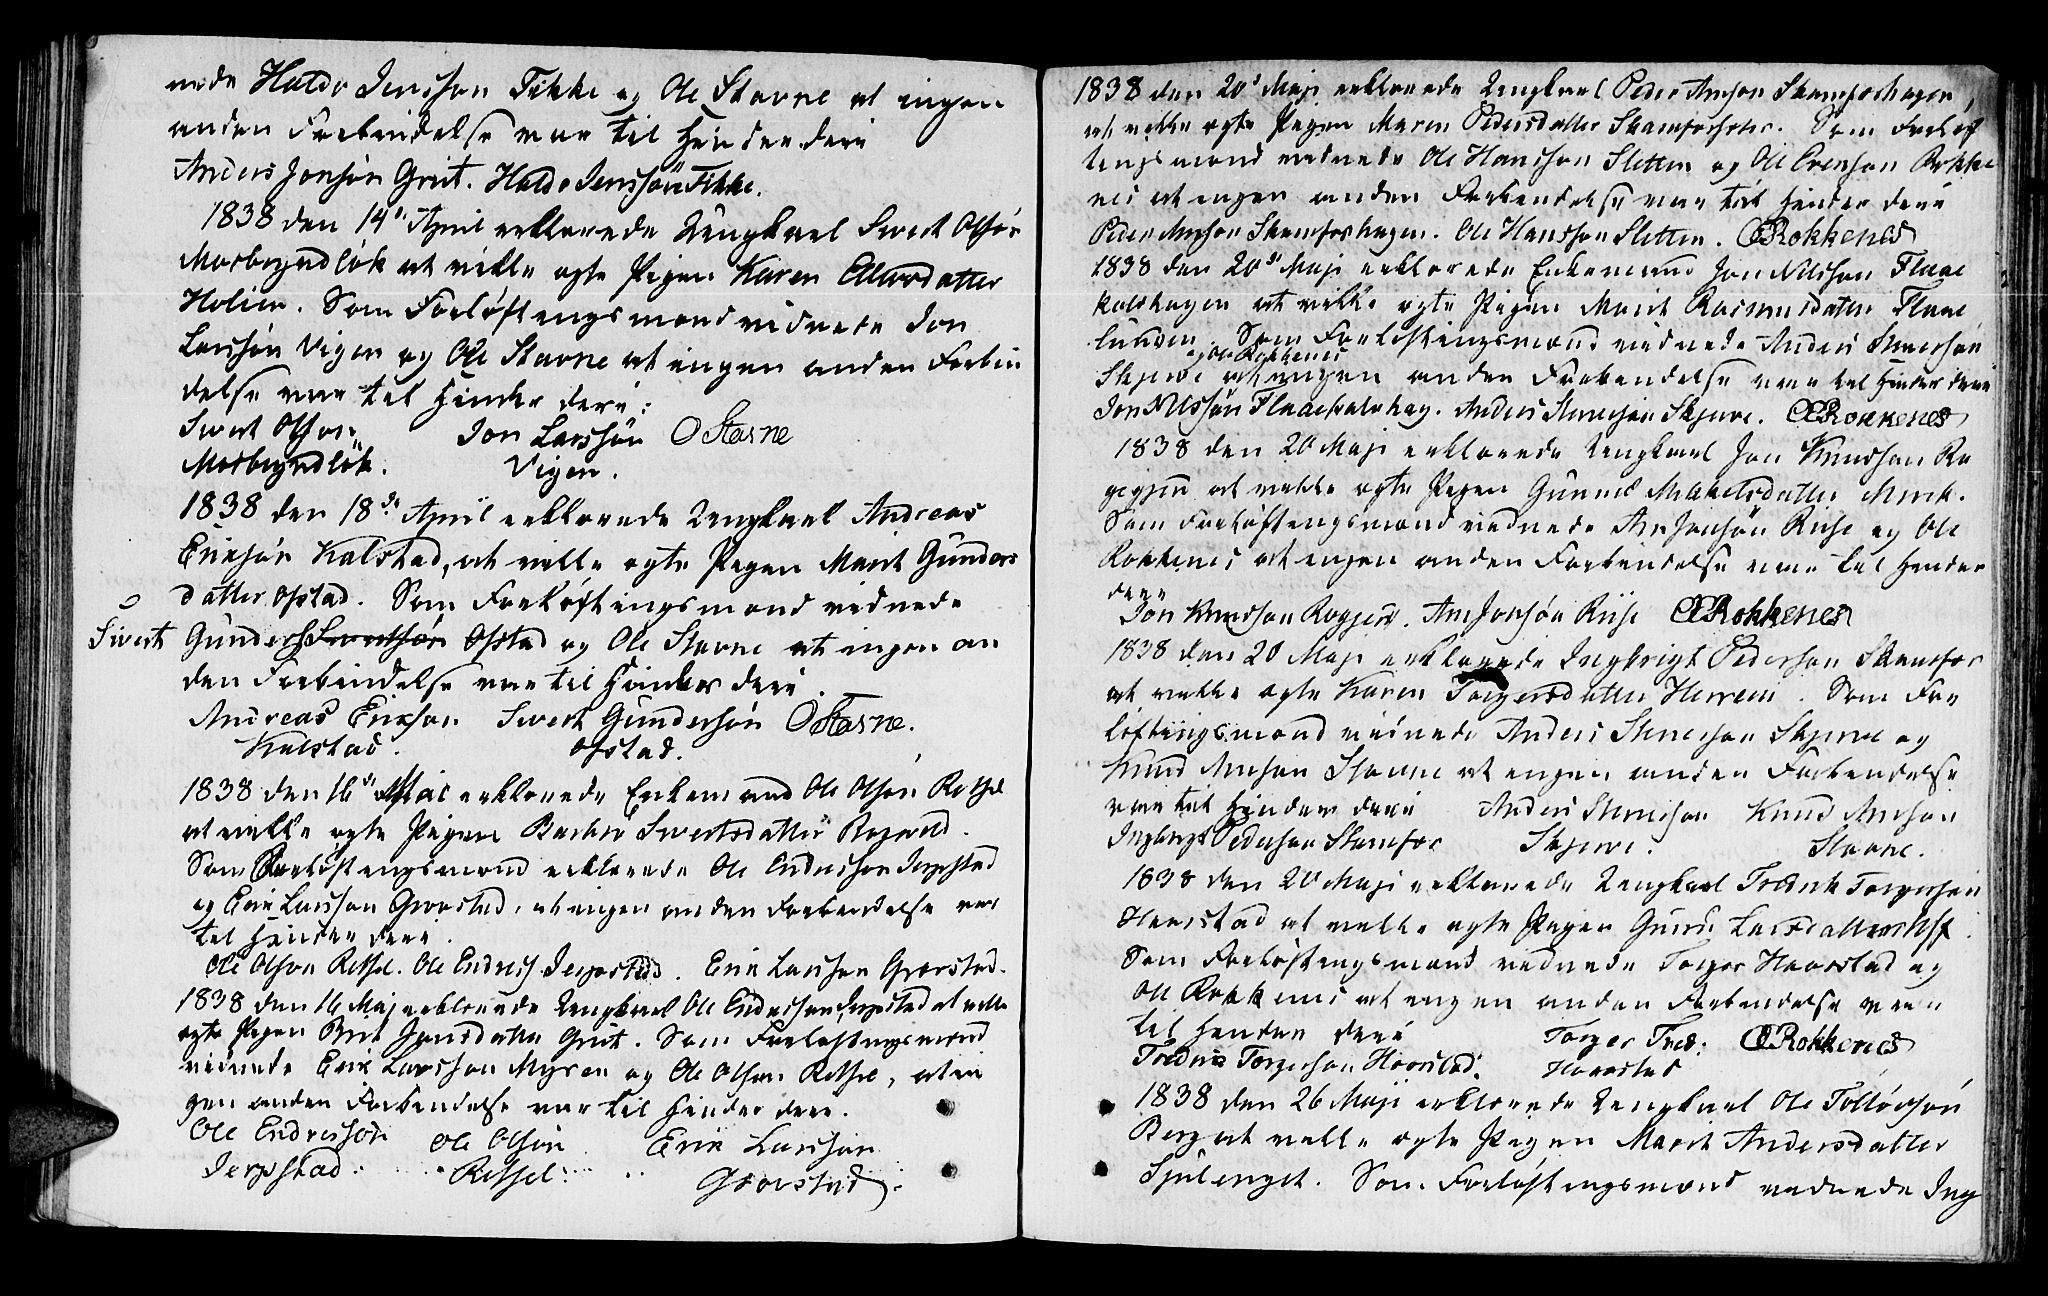 nede Haldo Jensson Fikke og Ole Stavne at ingen
anden Forbindelse var til Hinder deri
Anders Jonsön Grut. Haldo Jenssön Fikke.
1838 den 14de April erklærede Ungkarl Sivert Olsön
Mosbryndlök at ville ægte Pigen Karen Ellevsdatter
Holien. Som Forlöftningsmænd vidnede Jon
Larssön Vigen og Ole Stavne at ingen anden Forbin
delse var til Hinder deri.
Sivert Olsön Jon Larssön O Stavne
Mosbryndlök. Vigen.
1838 den 18de April erklærede Ungkarl Andreas
Eriksön Kalstad, at ville ægte Pigen Marit Gunders
datter Ofstad. Som Forlöftningsmænd vidnede
Sivert Gunders Sivertsön Ofstad og Ole Stavne at ingen an
den Forbindelse var til Hinder deri.
Andreas Erikson Sivert Gundersön O Stavne.
Kalstad. Ofstad.
1838 den 16de Mai erklærede Enkemand Ole Olsön Rethsel
at ville ægte Pigen Siversdatter
Som Forlöftningsmænd erklærede Ole Endresson Jerpstad
og Erik Larsson Gravstad, at ingen anden Forbindelse var
til Hinder deri.
Ole Olson Rethsel. Ole Endress Jerpstad. Erik Larsson Gravstad.
1838 den 16 Maj erklærede Ungkarl Ole Endresson Jerpstad at ville
ægte Pigen Brit Jonsdatter Grut. Som Forloftningsmænd
vidnede Erik Larsson Myren og Ole Olsen Rethsel, at in
gen anden Forbindelse var til Hinder deri.
Ole Endressön Ole Olsön Erik Larsson
Jerpstad. Rethsel. Gravstad.
1838 den 20de Maji erklærede Ungkarl Peder Arnson Skamfershagen,
at ville ægte Pigen Maren Pedersdatter. Som Forlöf
tingsmænd vidnede Ole Hansson Sletten og Ole Evenson Rokke
nes at ingen anden Forbindelse var til Hinder deri
Peder Arnson Skamfershagen. Ole Hansson Sletten. OERokkenes
1838 den 20de Maji erklærede Enkemand Jon Nilsson Flaae
kalshagen at ville ægte Pigen Marit Rasmusdatter Flaae
lunden. Som Forloftingsmænd vidnede Anders Steversön
og Ole Rokkenes
Skjerve at ingen anden Forbindelse var til Hinder deri
Jon Nilssön Flaaekalshag. Anders Skjerve. OERokkenes
1838 den 20 Maji erklærede Ungkarl Jon Knudson
at ville ægte Pigen Gunnel Mikkelsdatter
Som Forlöftningsmænd vidnede Arn Jonsön Riise og Ole
Rokkenes at ingen anden Forbindelse var til Hinder
deri
Jon Knudson. Arn Jonsön Riise OERokkenes
1838 den 20 Maji erklærede Ingbrigt Pederson Skamfer
at ville ægte Karen Torgersdatter Herrem. Som For
löftingsmænd vidnede Anders Skjerve og
Knud Arnson Stavne at ingen anden Forbindelse
var til Hinder deri Anders Knud Arnson
Ingbrigt Pederson Skamfer Skjerve. Stavne.
1838 den 20 Maji erklærede Ungkarl Fredrik Torgerson
Haarstad at ville ægte Pigen Larsdatter
Som Forlöftningsmænd vidnede Torger Haarstad og
Ole Rokkenes at ingen anden Forbindelse var
til Hinder deri Torger Fred: OERokkenes
Fredrik Torgerson Haarstad. Haarstad
1838 den 26 Maji erklærede Ungkarl Ole Tollövsön
Berg at ville ægte Pigen Marit Andersdatter
Sjulenget. Som Forlöftningsmænd vidnede Ing